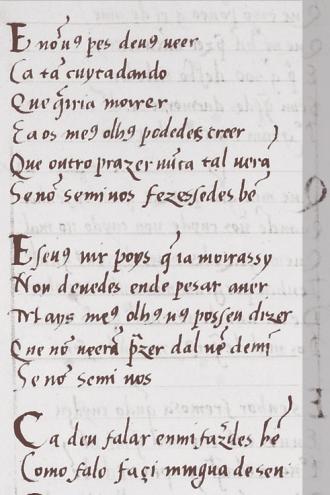 E nõ uꝯ pes deuꝯ ueer
Ca tã cuytadando
Que q̃iria moirer
Ea os meꝯ olhꝯ podedes creer )
Que outro prazer nũca tal uera
Se nõ semi uos fezessedes bẽ
E seuꝯ uir poys q̃ ia moirassy
Non deuedes ende pesar auer
Mays meꝯ olhꝯ uꝯ possen dizer
Que nõ ueerã p̃zer dal nẽ demĩ
Se nõ semi uos
Ca deu falar enmi fazdes bẽ
Como falo façi mingua desen